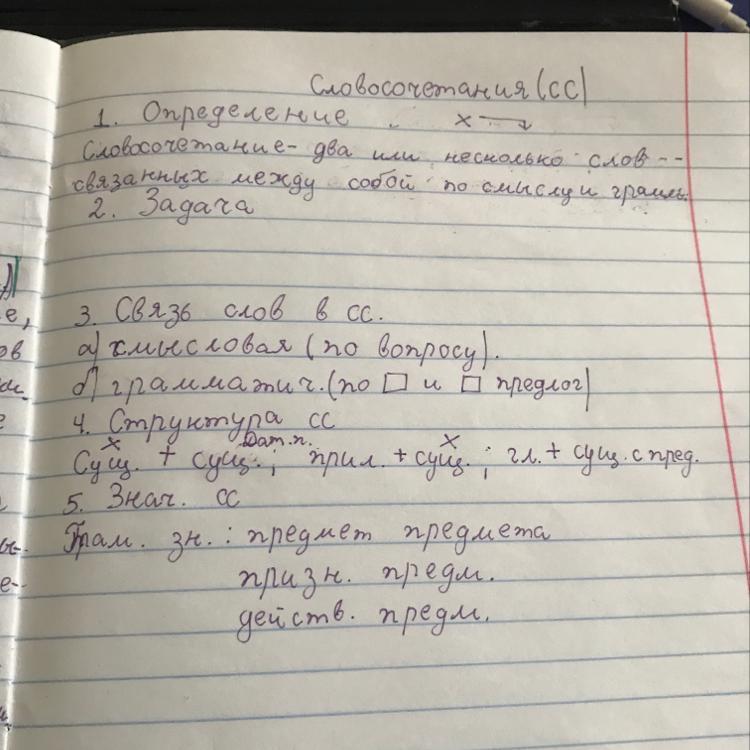 Словосочетания (СС)
1. Определение х
Словосочетание - два или несколько слов --
связанных между собой по смыслу и грамм.
2. Задача
3. Связь слов в сс.
а) смысловая (по вопросу).
б) грамматич. (по □ и □ предлог)
4. Структура сс
х Дат.п. х
Сущ. + сущ.; прил. + сущ.; гл. + сущ. с пред.
5. Знач. сс
Грам. зн.: предмет предмета
призн. предм.
действ. предм.
е,
ов
е
ы-
е-